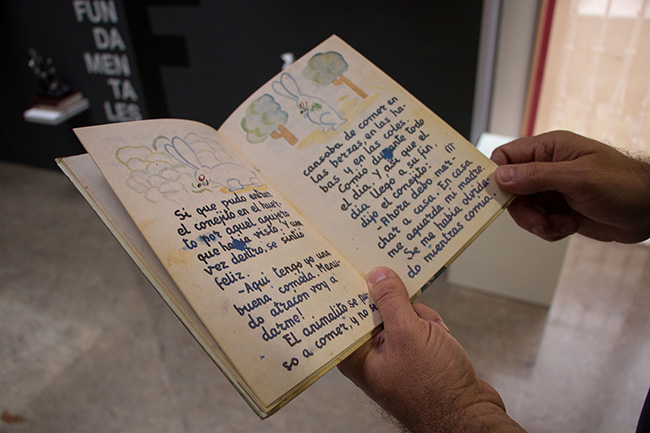 FUN
DA
MEN
TA
LES
Si que pudo entrar
el conejito en el huer-
to por aquel agujero
que había visto. Y una
vez dentro, se sintió
feliz.
-Aquí tengo yo una
buena comida. ¡Menu-
do atracón voy a
darme!
El animalito se pu-
so a comer, y no se
cansaba de comer en
las berzas, en las ha-
bas y en las coles.
Comió durante todo
el día y así que el
día llegó a su fin,
dijo el conejito:
III
-Ahora debo mar-
char a casa. En casa
me aguarda mi madre.
Se me había olvidado
mientras comía.